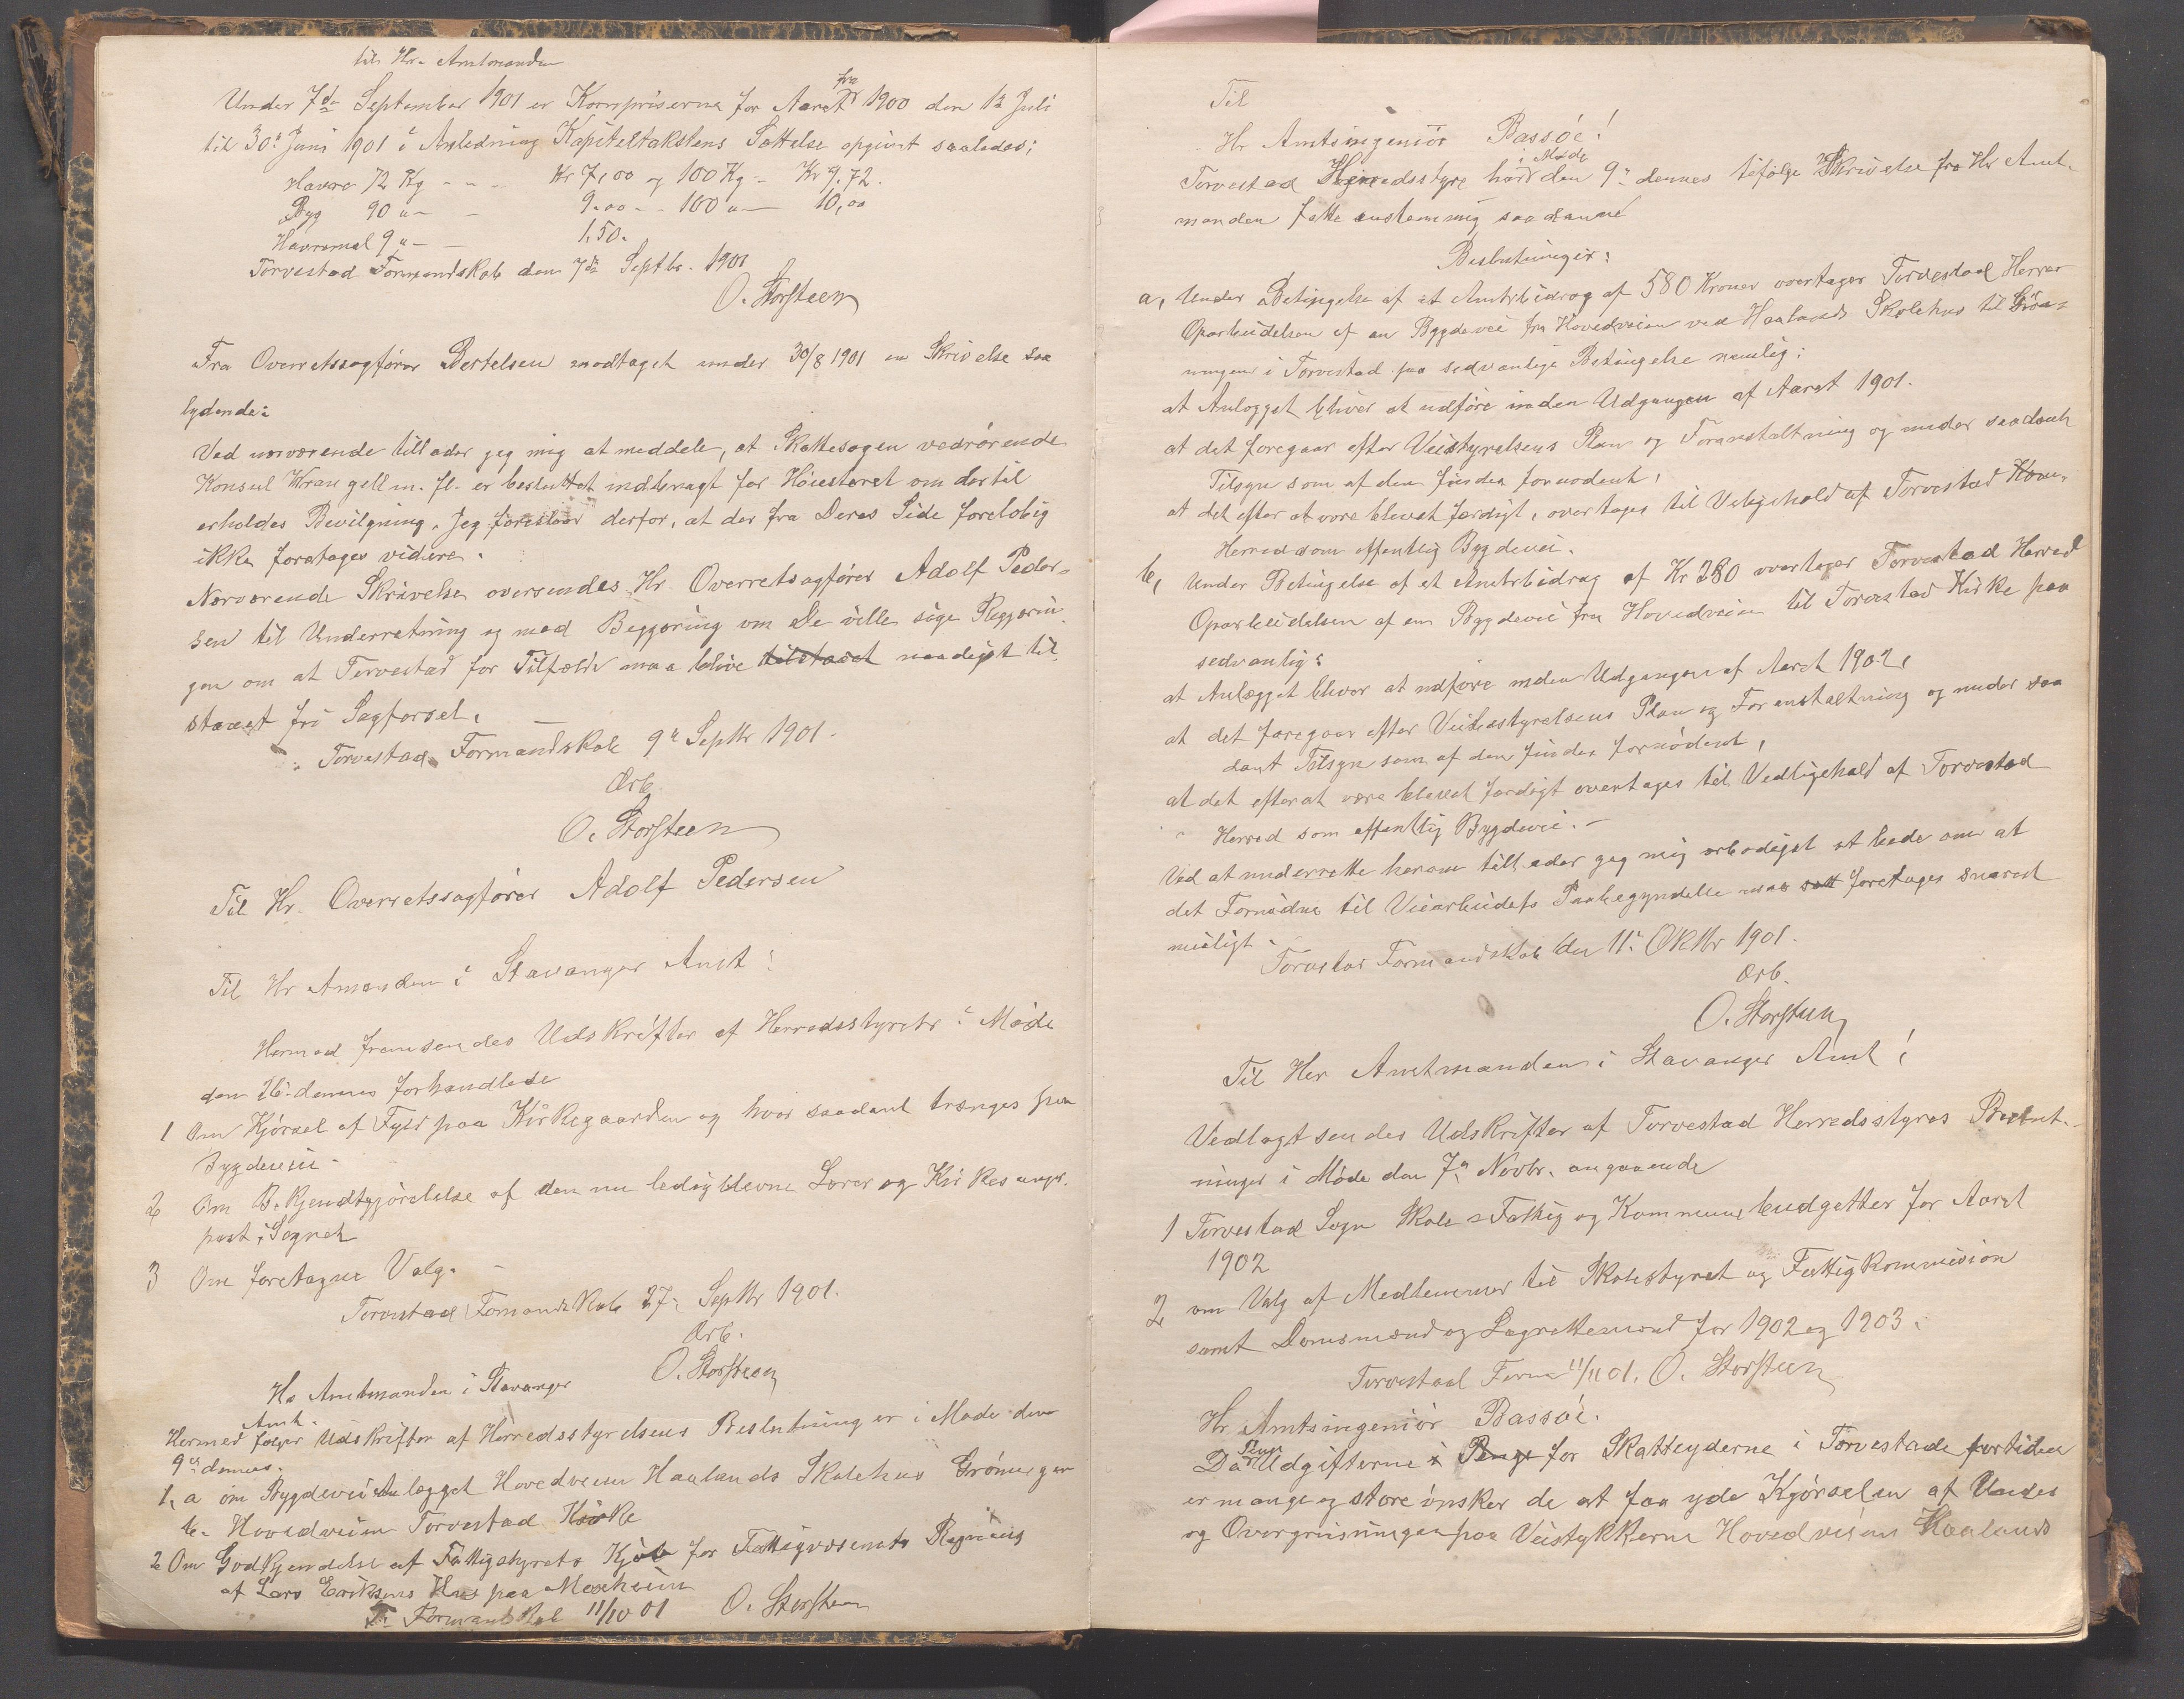 til Hr. Amtmanden
Under 7de September 1901 er Kornpriserne for Aaret fra 1900 den 1a Juli
til 30te Juni 1901 i Anledning Kapiteltakstens Sættelse opgivet saaledes;
Havre 72 Kg - - - Kr 7,00 og 100 Kg - Kr 9.72.
Byg 90 " - - 9.00 - - 100 " - 10,00
Havremel 9 " - - 1,50.
Torvestad Formandskab den 7de Septbr. 1901
O. Storsteen
Fra Overretssagfører Bertelsen modtaget under 30/8 1901 en Skrivelse saa
lydende:
Ved nærværende tillader jeg mig at meddele, at Skattesagen vedrørende
Konsul Wrangell m. fl. er besluttet indbragt for Høiesteret om dertil
erholdes Bevilgning. Jeg foreslaar derfor, at der fra Deres Side foreløbig
ikke foretages videre.
Nærværende Skrivelse oversendes Hr. Overretsagfører Adolf Peder-
sen til Underretning og med Beggæring om De ville søge Reggjerin
gen om at Torvestad for Tilfælde maa blive tilstaaet naadigst til
staaet fri Sagførsel.
Torvestad Formandskab 9de Septbr 1901.
Ærb.
O. Storsteen
Til Hr. Overretssagfører Adolf Pedersen
Til Hr Amanden i Stavanger Amt!
Hermed fremsendes Udskrifter af Herredsstyrets i Møde
den 26. dennes forhandlede
1 Om Kjørsel af Fyld paa Kirkegaarden og hvor saadant trænges paa
Bygdeveie -
2 Om Bekjendtgjørelelse af den nu ledigblevne Lærer og Kirkesanger
post i Sognet
3 Om foretagne Valg. -
Torvestad Fomandskab 27. Septbr 1901.
Ærb.
O. Storsteen
Hr Amtmanden i Stavanger
Amt.
Hermed følger Udskrifter af Herredsstyrelsens Beslutning er i Møde den
9de dennes.
1, a om Bygdeveianlægget Hovedveien Haalands Skolehus Grønningen
b. Hovedveien Torvestad Kirke
2 Om Godkjendelse af Fattigstyrets Kjøb for Fattigvæsenets Regning
af Lars Eriksens Hus paa Moxheim
T. Formandskab 11/10 01 O. Storsteen
Til
Hr Amtsingeniør Bassøe!
Torvestad Herredsstyre har i Møde den 9de dennes tifølge Skrivelse fra Hr Amt-
manden fatte enstemmig saadanne
Beslutninger:
a, Under Betingelse af et Amtsbidrag af 580 Kroner overtager Torvestad Herrer
Oparbeidelsen af en Bygdevei fra Hovedveien ved Haalands Skolehus til Grøn-
ningen i Torvestad paa sedvanlige Betingelse nemlig:
at Anlægget bliver at udføre inden Udgangen af Aaret 1901.
at det foregaar efter Veistyrelsens Plan og Foranstaltning og under saadant
Tilsyn som af den findes fornødent,
at det efter at være blevet færdigt, overtages til Veligehold af Torvestad
Herred som offentlig Bygdevei.
b, Under Betingelse af et Amtsbidrag af Kr 280 overtager Torvestad Herred
Oparbeidelsen af en Bygdevei fra Hovedveien til Torvestad Kirke paa
sedvanlig:
at Anlægget bliver at udføre inden Udgangen af Aaret 1902,
at det foregaar efter Veistyrelsens Plan og Foranstaltning og under saa
dant Tilsyn som af den findes fornødent,
at det efter at være blevet færdigt overtages til Vedligehald af Torvestad
Herred som offentlig Bygdevei. -
Ved at underrette herom tillader jeg mig ærbødigst at bede om at
det Fornødne til Veiarbeidets Paabegyndelse maa foretages snarest
muligt.
Torvestad Formandskab den 11te Oktbr 1901.
Ærb.
O. Storsteen
Til Her Amtmanden i Stavanger Amt!
Vedlagt sendes Udskrifter af Torvestad Herredsstyres Beslut-
ninger i Møde den 7de Novbr. angaaende
1 Torvestad Sogn Skole - Fattig og Kommunebudgetter for Aaret
1902
2 om Valg af Medlemmer til Skolestyret og Fattigkommision
samt Domsmænd og Lagrettemænd for 1902 og 1903.
Torvestad Form 11/11 01. O. Storsteen
Hr. Amtsingeniør Bassøe.
Da Penge Udgifterne i Penge for Skatteyderne i Torvestade fortiden
er mange og store ønsker de at faa yde Kjørselen af
og Overgrusningen paa Veistykkerne Hovedveien Haalands